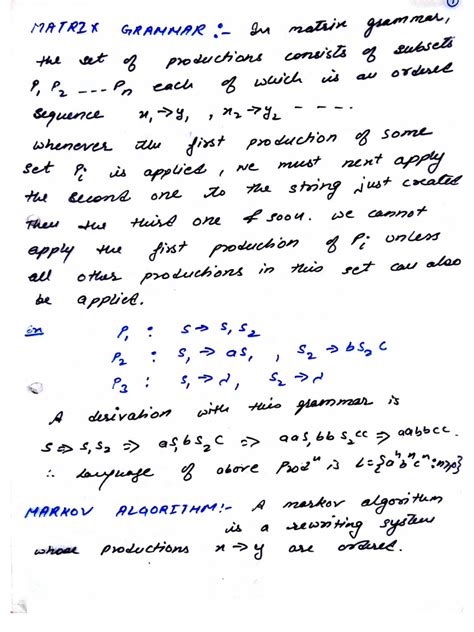 ①
MATRIX GRAMMAR :- In matrix grammar,
the set of productions consists of subsets
P₁ P₂ ---- Pₙ each of which is an ordered
sequence x₁→y₁, , x₂→y₂ - - - -.
whenever the first production of some
set Pᵢ is applied, we must next apply
the second one to the string just created
then the third one & soon. we cannot
apply the first production of Pᵢ unless
all other productions in this set can also
be applied.
P₁ : S→ S₁S₂
P₂ : S₁ → aS₁ , S₂ → bS₂c
P₃ : S₁→λ, S₂→λ
A derivation with this grammar is
S⇒ S₁S₂ ⇒ aS₁bS₂c ⇒ aaS₁bbS₂cc ⇒ aabbcc.
∴ language of above Prodⁿ is L={aⁿbⁿcⁿ:n≥0}
MARKOV ALGORITHM:- A markov algorithm
is a rewriting system
whose productions x→y are ordered.